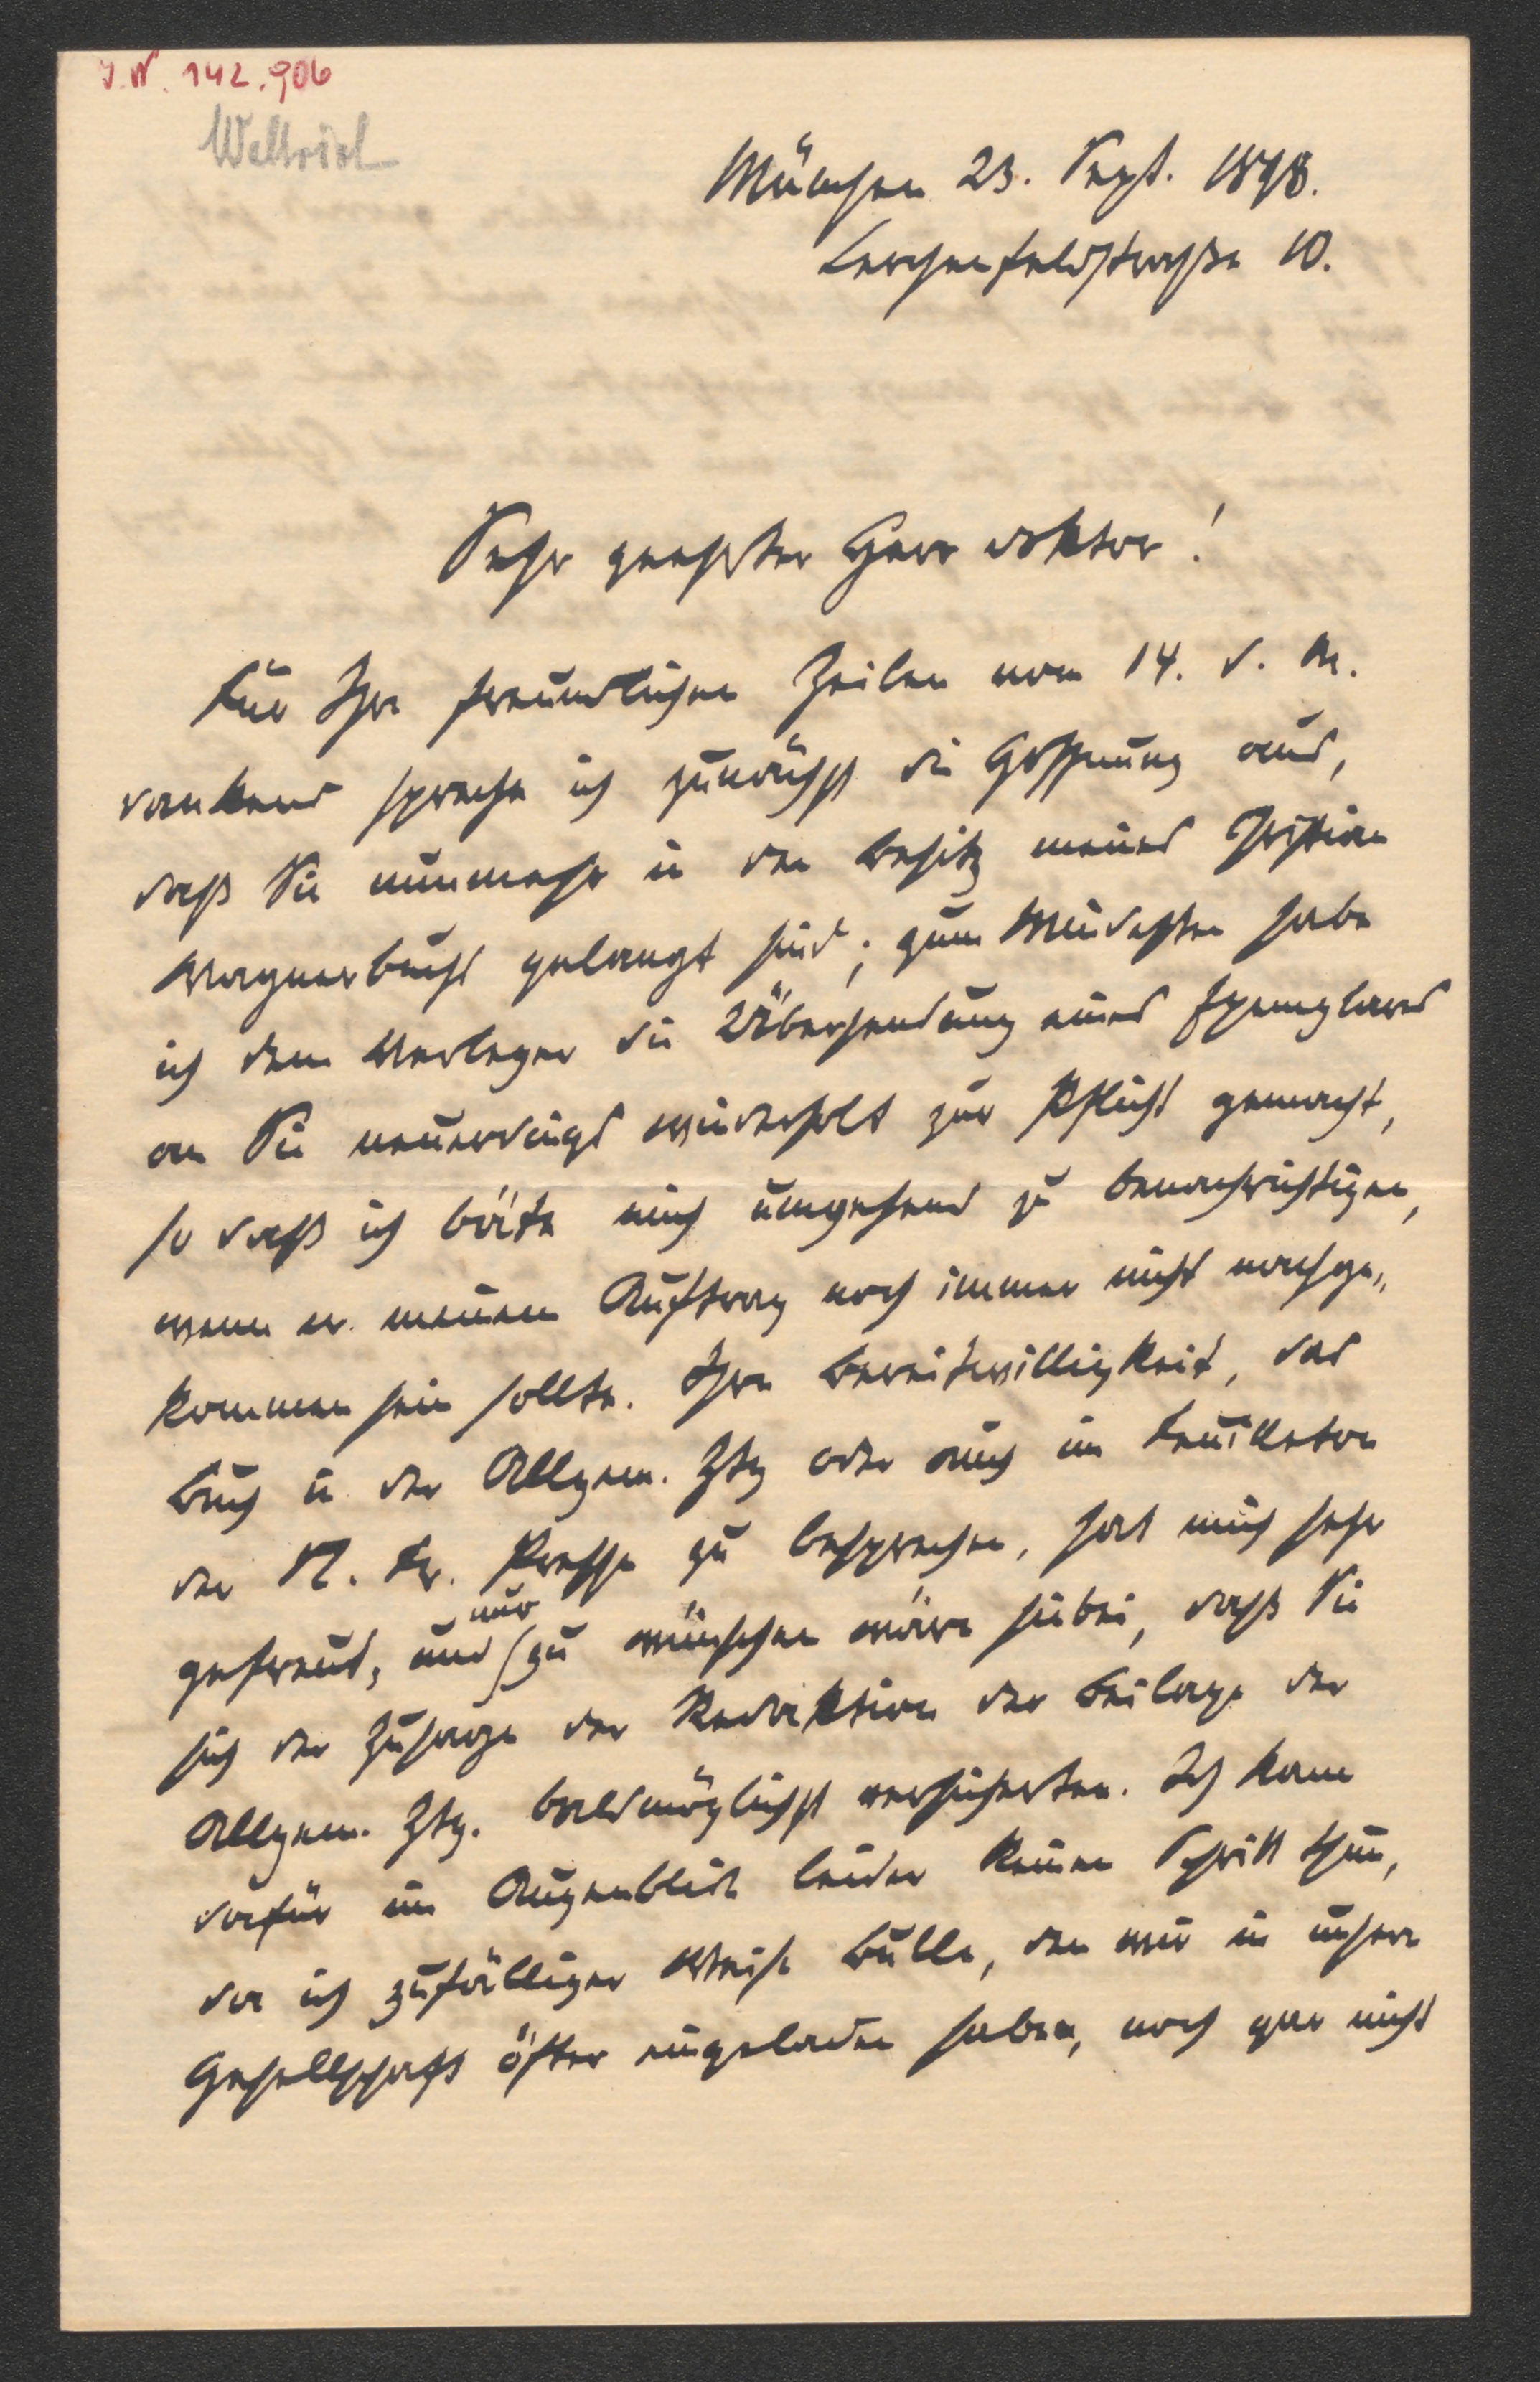 J.N. 142.906
Weltrich
München 23. Sept. 1898.
Lerchenfeldstraße 10.
Sehr geehrter Herr Doktor!
Für Ihre freundlichen Zeilen vom 14. d. M.
dankend spreche ich zunächst die Hoffnung aus,
daß Sie nunmehr in den Besitz meines Christian
Wagnerbuchs gelangt sind; zum Mindesten habe
ich dem Verleger die Übersendung eines Exemplares
an Sie neuerdings wiederholt zur Pflicht gemacht,
so daß ich bäte mich umgehend zu benachrichtigen,
wenn er meinem Auftrag noch immer nicht nachge-
kommen sein sollte. Ihre Bereitwilligkeit, das
Buch in der Allgem. Ztg oder auch im Feuilleton
der N. Fr. Presse zu besprechen, hat mich sehr
gefreut, und nur zu wünschen wäre hiebei, daß Sie
sich der Zusage der Redaktion der Beilage der
Allgem. Ztg. baldmöglichst versicherten. Ich kann
dafür im Augenblick leider keinen Schritt thun,
da ich zufälliger Weise Bulle, den wir in unsere
Gesellschaft öfter eingeladen haben, noch gar nicht